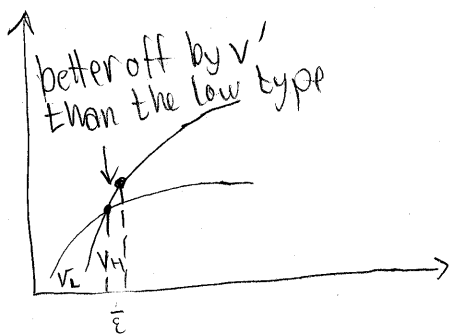 better off by v'
than the low type
VL VH
ε̄